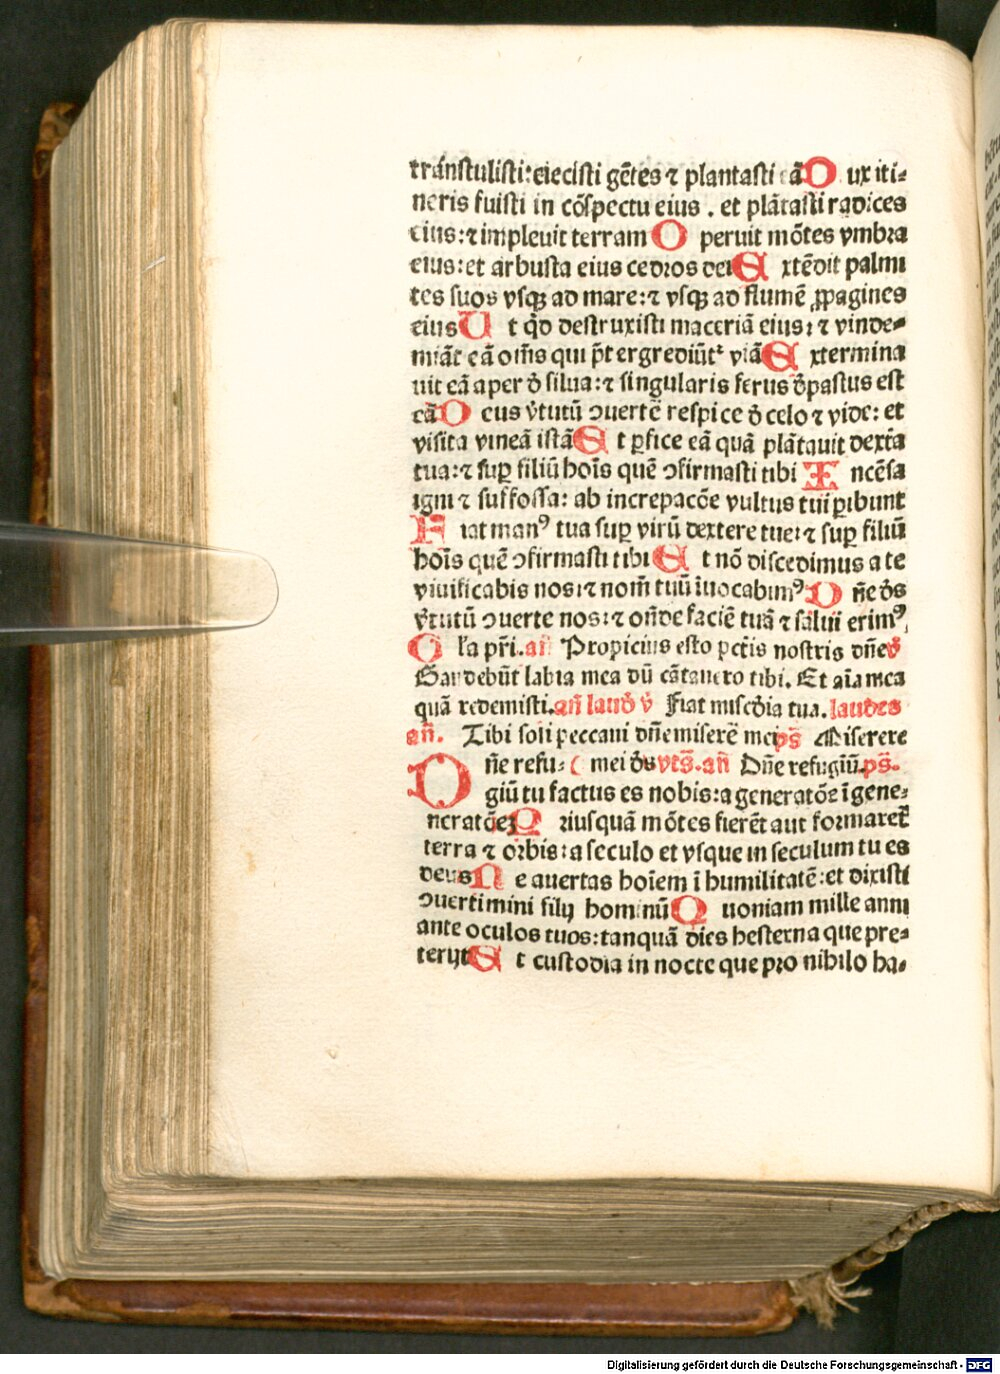 tránstulisti: eiecisti gētes ⁊ plantasti eā D ux iti-
neris fuisti in cōspectu eius . et plātasti radices
eius: ⁊ impleuit terram O peruit mōtes vmbra
eius: et arbusta eius cedros dei E xtēdit palmi
tes suos vsqꝫ ad mare: ⁊ vsqꝫ ad flumē ꝓpagines
eius U t qd destruxisti maceriā eius: ⁊ vinde-
miāt eā om̄s qui p̄tergrediūt᷑ viā E xtermina
uit eā aper d̄ silua: ⁊ singularis ferus d̄pastus est
eā D eus v̄tutū ꝯuerte respice d̄ celo ⁊ vide: et
visita vineā istā E t ꝑfice eā quā plātauit dext̄a
tua: ⁊ suꝑ filiū hoīs quē ꝯfirmasti tibi I ncēsa
igni ⁊ suffossa: ab increpacōe vultus tui ꝑibunt
F iat manꝰ tua suꝑ virū dextere tue: ⁊ suꝑ filiū
hoīs quē ꝯfirmasti tibi E t nō discedimus a te
viuificabis nos: ⁊ nom̄ tuū īuocabimꝰ D n̄e d̄s
v̄tutū ꝯuerte nos: ⁊ on̄de faciē tuā ⁊ salui erimꝰ
G l'a pr̄i. an̄ Propicius esto pctīs nostris dn̄e v̄
Gaudebūt labia mea dū cātauero tibi. Et aīa mea
quā redemisti. an̄ laud̄ v̄ Fiat misc̄dia tua. laudes
an̄. Tibi soli peccaui dn̄e miserē mei ps̄ Miserere
D n̄e refu- ( mei d̄s vts̄. an̄ Dn̄e refugiū. ps̄.
giū tu factus es nobis: a generatōe ī gene-
neratōeꝫ P riusquā mōtes fierēt aut formaret᷑
terra ⁊ orbis: a seculo et vsque in seculum tu es
deus N e auertas hoīem ī humilitatē: et dixisti
ꝯuertimini filij hominū Q uoniam mille anni
ante oculos tuos: tanquā dies hesterna que pre-
terijt E t custodia in nocte que pro nihilo ha-
Digitalisierung gefördert durch die Deutsche Forschungsgemeinschaft - DFG